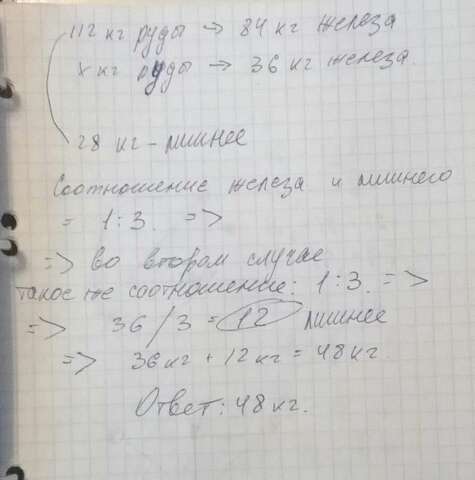 112 кг руды → 84 кг железа
x кг руды → 36 кг железа
28 кг - лишнее
Соотношение железа и лишнего
= 1:3. =>
=> во втором случае
такое же соотношение: 1:3. =>
=> 36/3 = 12 лишнее
=> 36 кг + 12 кг = 48 кг
Ответ: 48 кг.